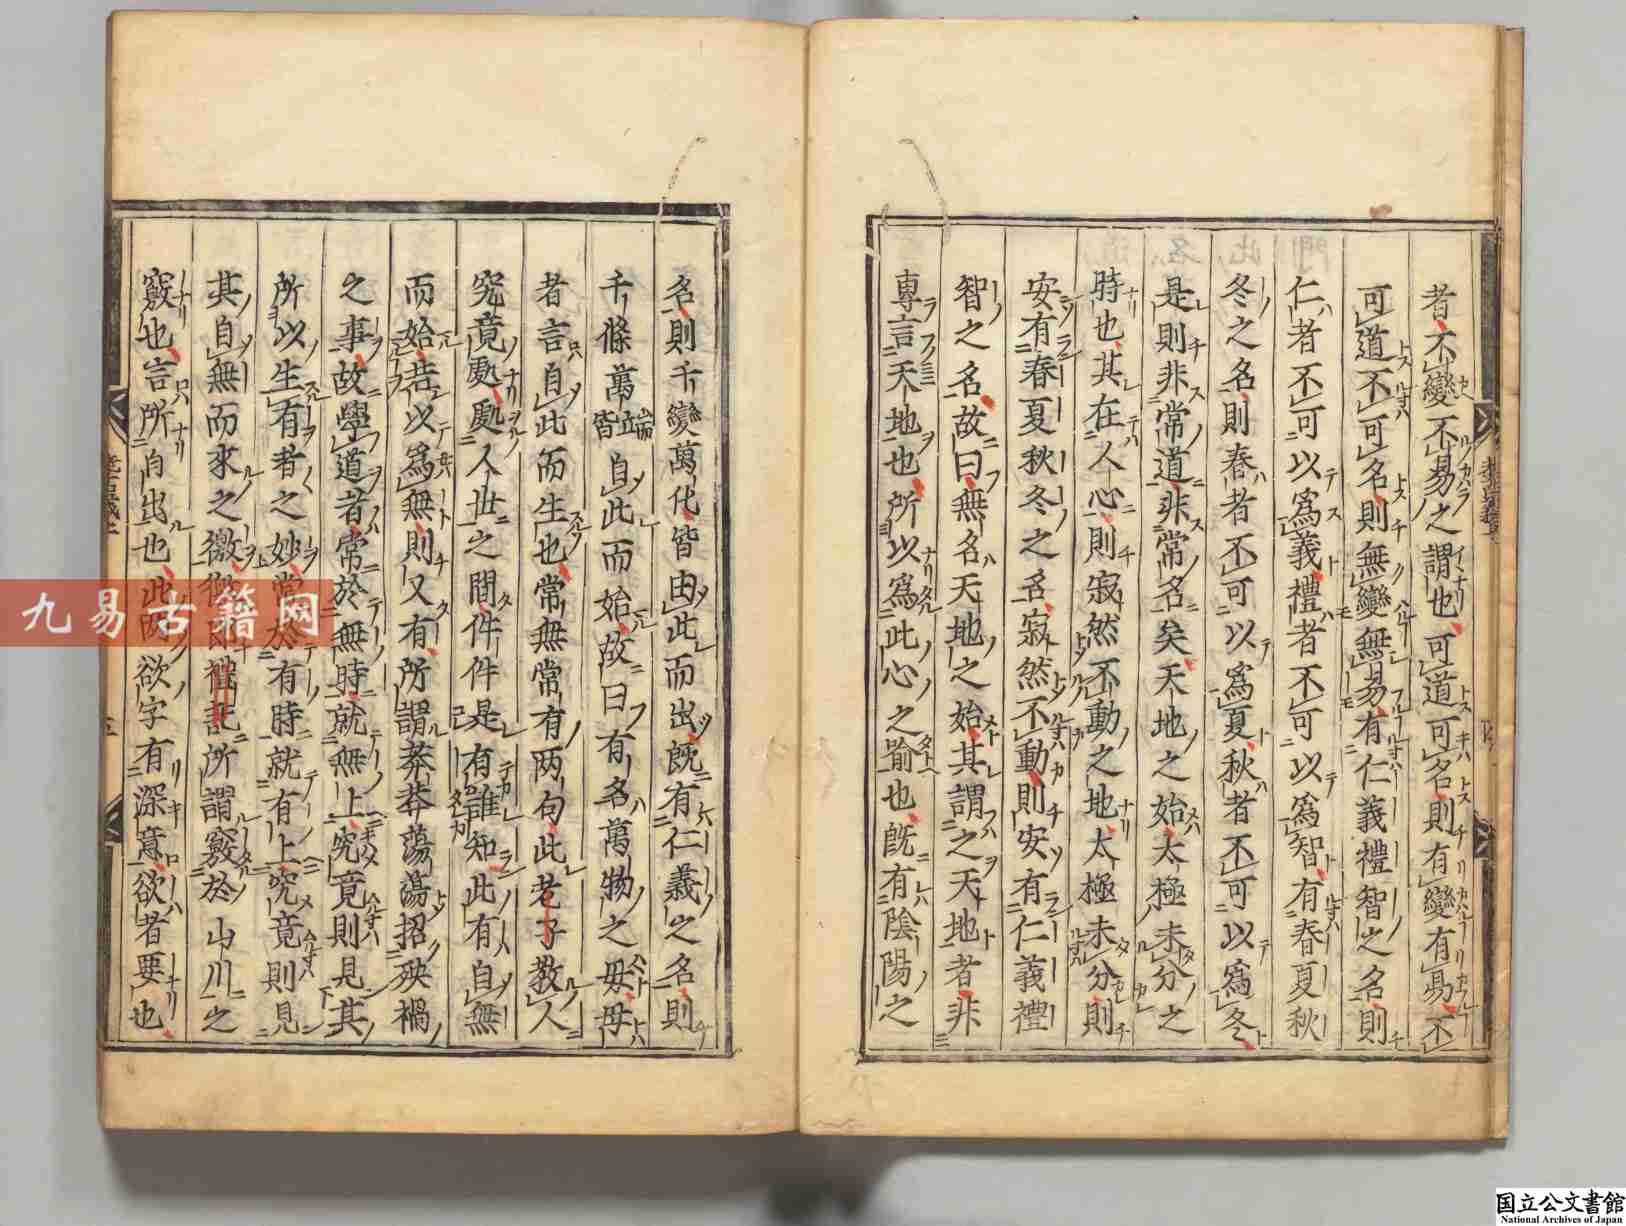 者不變不易之謂也可道可名則有變有易不
可道不可名則無變無易有仁義禮智之名則
仁者不可以為義禮者不可以為智有春夏秋
冬之名則春者不可以為夏秋者不可以為冬
是則非常道非常名矣天地之始太極未分之
時也其在人心則寂然不動之地太極未分則
安有春夏秋冬之名寂然不動則安有仁義禮
智之名故曰無名天地之始其謂之天地者非
專言天地也所以為此心之喻也既有陰陽之
名則千變萬化皆由此而出既有仁義之名則
千條萬端皆自此而始故曰有名萬物之母母
者言自此而生也常無常有两句此老子教人
究竟處處人世之間件件是有誰知此有自無
而始若以為無則又有所謂莽莽蕩蕩招殃禍
之事故學道者常於無時就無上究竟則見其
所以生有者之妙常於有時就有上究竟則見
其自無而來之徼徼即禮記所謂竅於山川之
竅也言所自出也此两欲字有深意欲者要也
九易古籍网
国立公文書館
National Archives of Japan